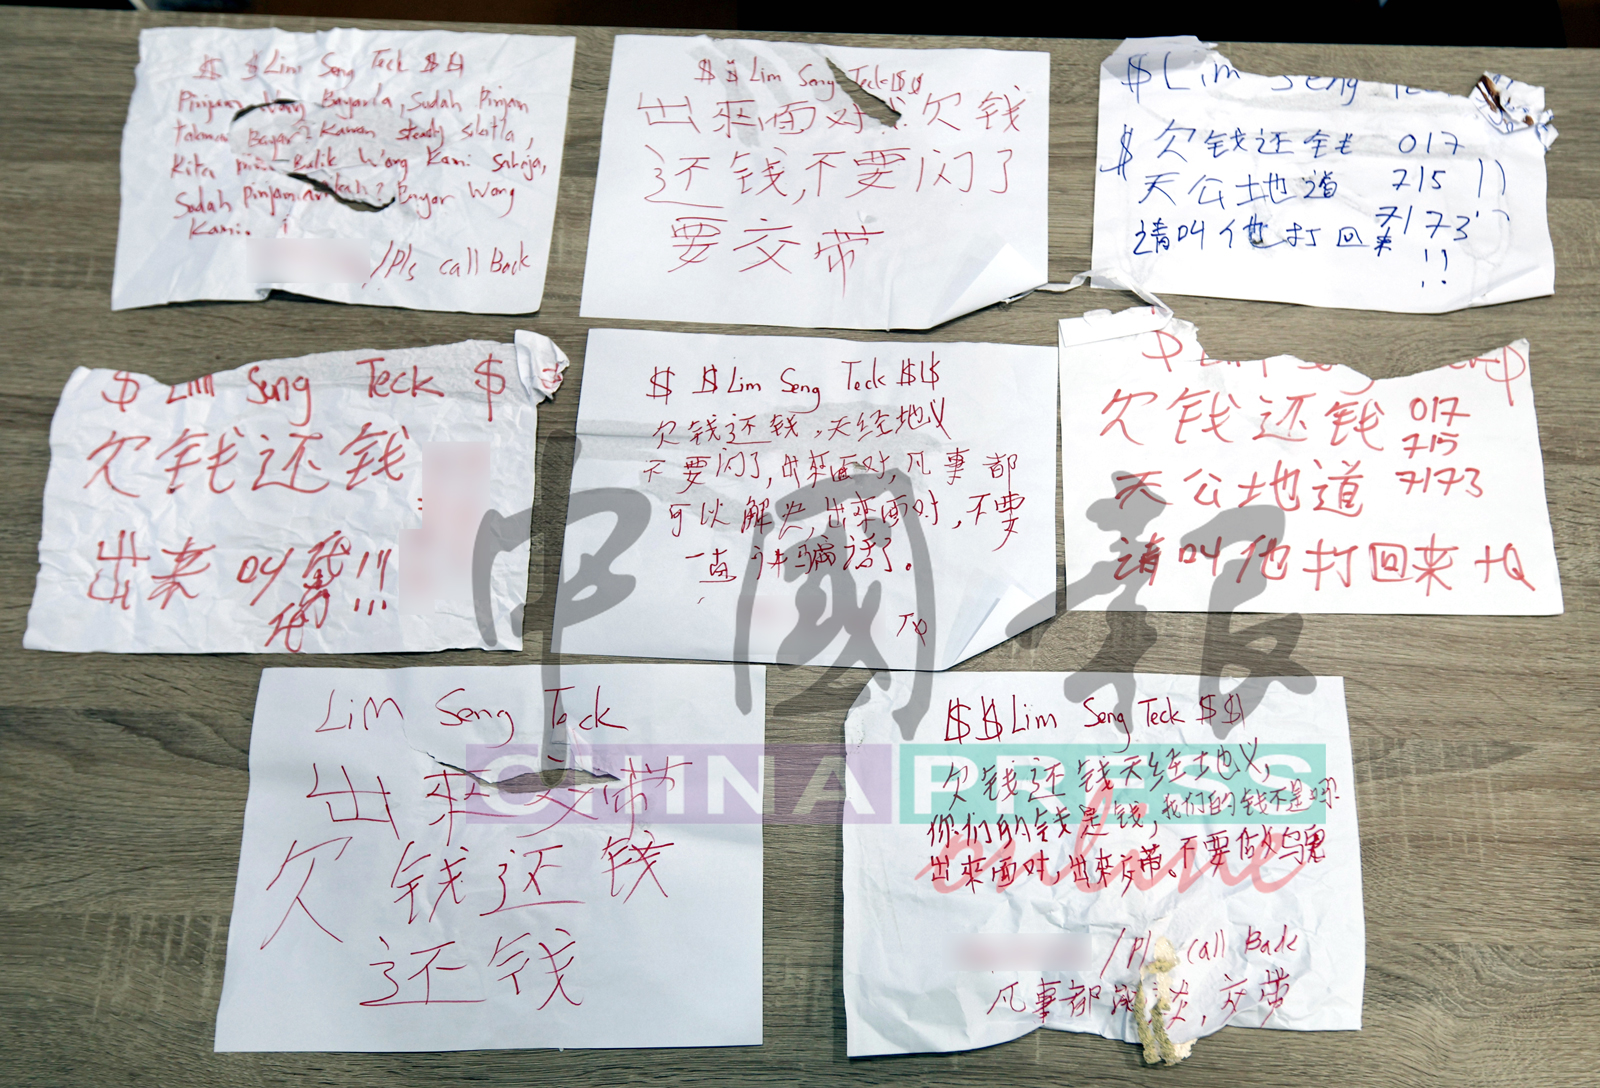 $ $ Lim Seng Teck $ $
Pinjam Wang Bayarla, Sudah Pinjam
Bayar? Kawan steady sikitla,
Kita Balik Wang Kami Sahaja,
Sudah Bayar Wang
Kami.
/Pls call Back
$ $ Lim Seng Teck $ $
出來面对 欠钱
还钱,不要闪了
要交带
$ Lim Seng
$ 欠钱还钱 017
天公地道 715
请叫他打回来 7173
!!
$ Lim Seng Teck $
欠钱还钱
出来 叫 !!!
$ $ Lim Seng Teck $ $
欠钱还钱,天经地义
不要闪了,出來面对,凡事都
可以解决,出來面对,不要
一直 骗话了。
TQ
欠钱还钱 017
715
天公地道 7173
请叫他打回来 TQ
Lim Seng Teck
出來交带
欠钱还钱
还钱
$ $ Lim Seng Teck $ $
欠钱还钱天经地义,
你们的钱是钱,我们的钱不是吗?
出來面对,出來交带。不要做乌龟
/Pls call Back
凡事都 谈,交带
中國報
CHINA PRESS
online